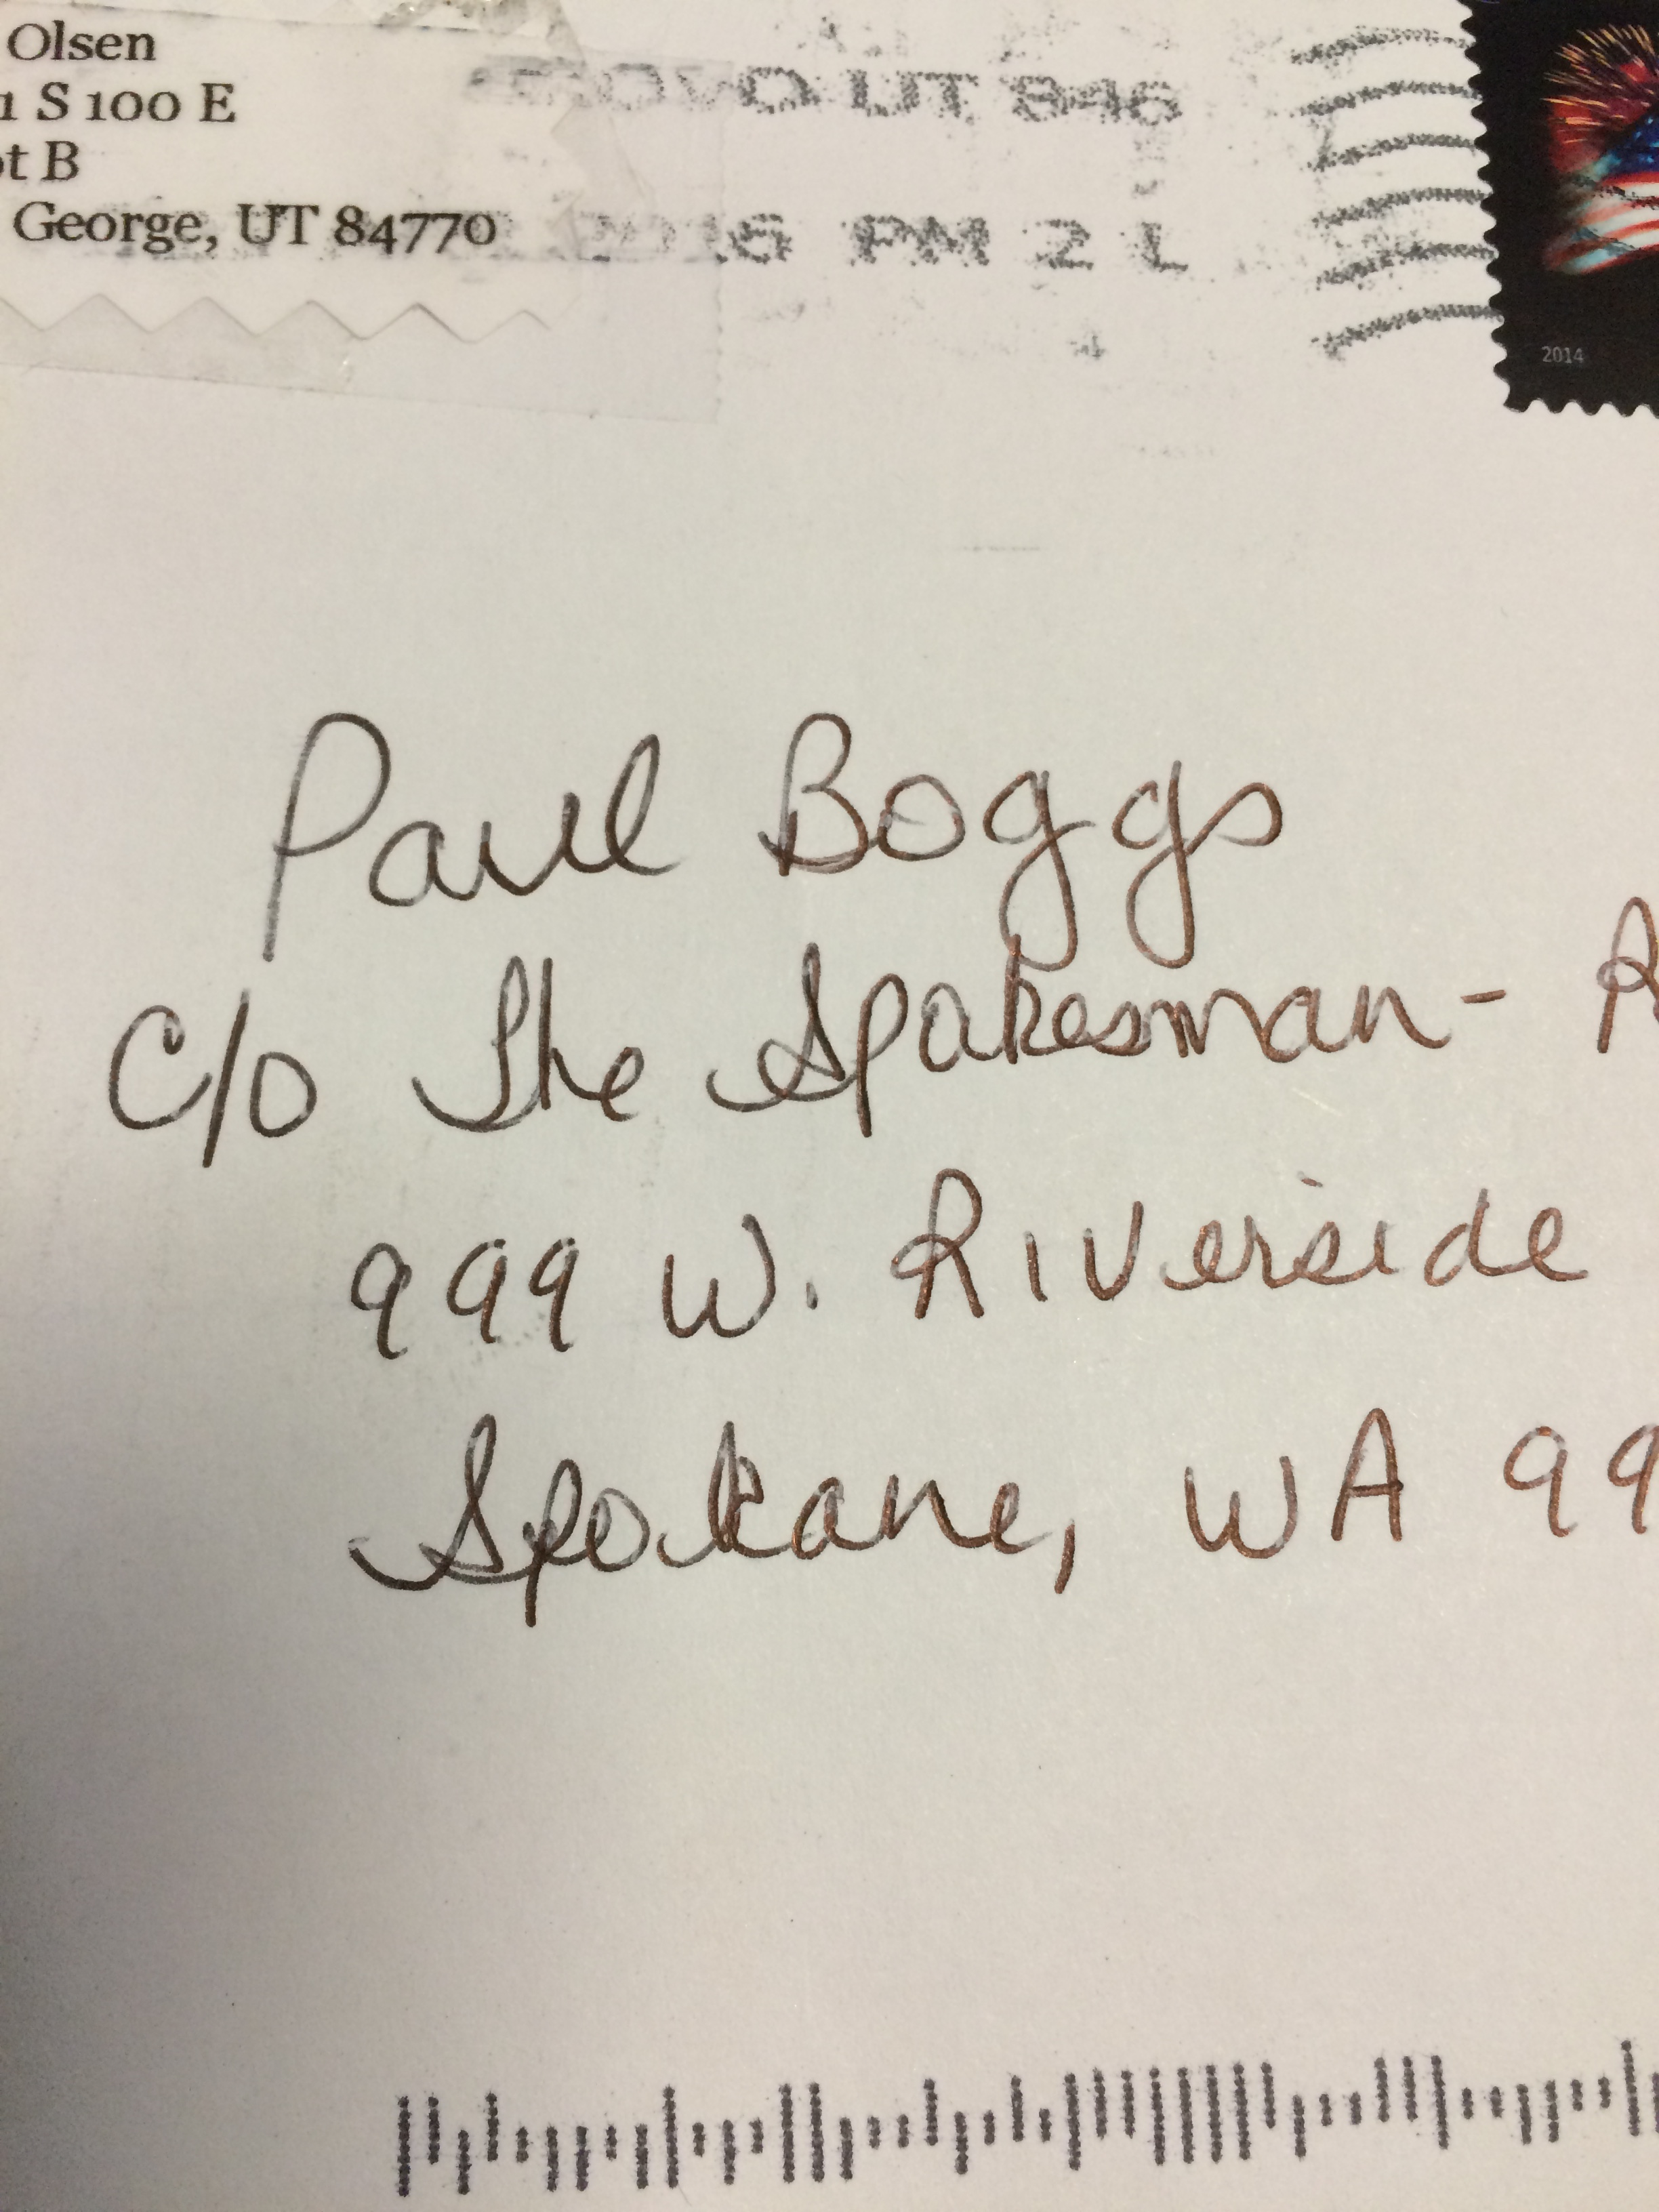 Olsen
1 S 100 E
ot B
George, UT 84770
OVO UT 846
2016 PM 2 L
2014
Paul Boggs
c/o The Spokesman - R
999 W. Riverside
Spokane, WA 99